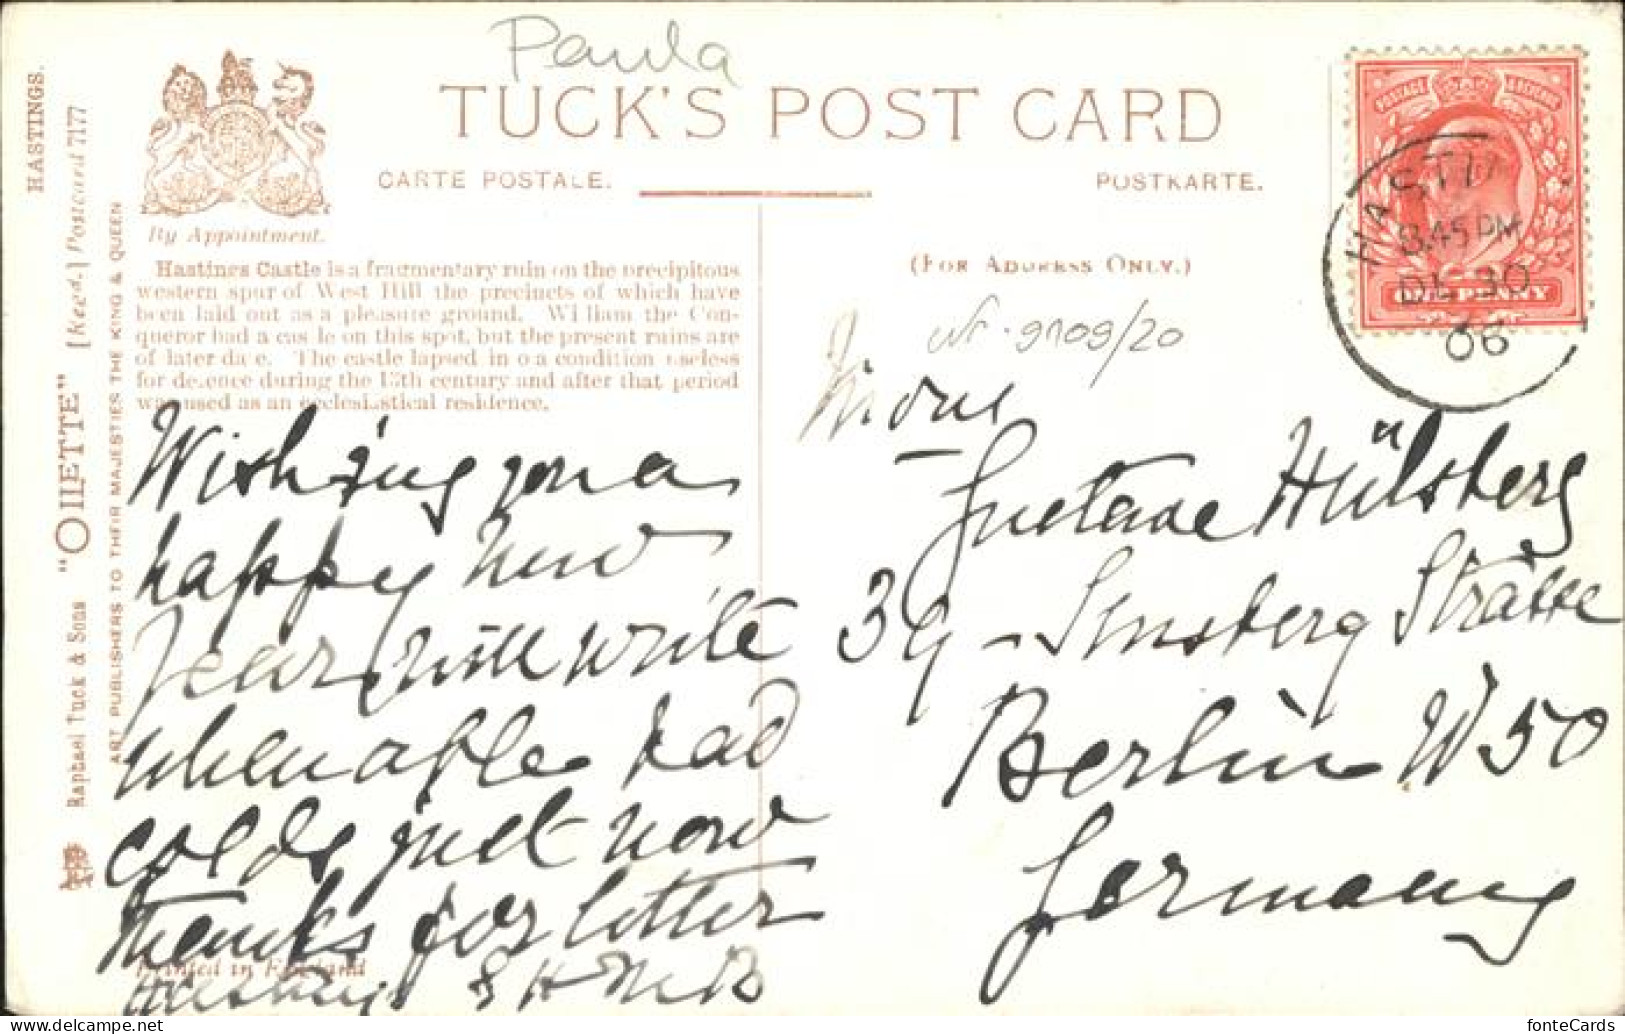 Paula
TUCK'S POST CARD
CARTE POSTALE.
POSTKARTE.
By Appointment.
(FOR ADDRESS ONLY.)
HASTINGS.
[Regd.] Postcard 7177
Raphael Tuck & Sons "OILETTE"
ART PUBLISHERS TO THEIR MAJESTIES THE KING & QUEEN
Hastings Castle is a fragmentary ruin on the precipitous
western spur of West Hill the precincts of which have
been laid out as a pleasure ground. William the Con-
queror had a castle on this spot, but the present ruins are
of later date. The castle lapsed into a condition useless
for defence during the 13th century and after that period
was used as an ecclesiastical residence.
Wishing you a
happy New
Year, will write
when able bad
colds just now
thanks for letter
Hastings
Printed in England
POSTAGE REVENUE
ONE PENNY
HASTIN
8.45 PM
DE 30
06
Nr. 9109/20
Gustave Hülsberg
39 - Strasse
Berlin W 50
Germany
fonteCards